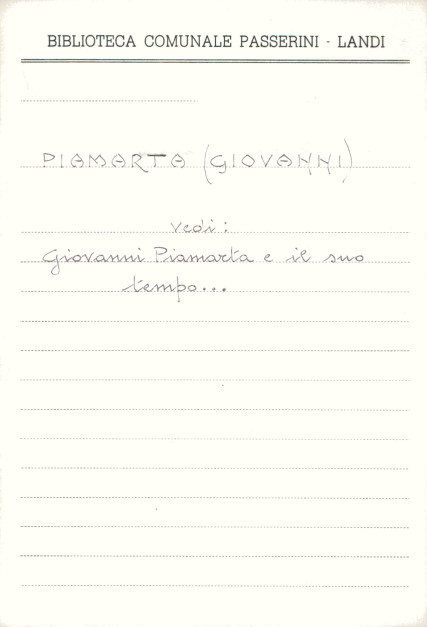 BIBLIOTECA COMUNALE PASSERINI - LANDI
PIAMARTA (GIOVANNI)
vedi:
Giovanni Piamarta e il suo
tempo...